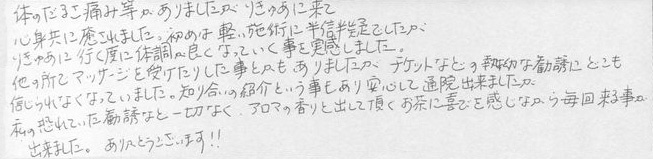 体のだるさ痛み等がありましたがりきゅあに来て
心身共に癒されました。初めは軽い施術に半信半疑でしたが
りきゅあに行く度に体調が良くなっていく事を実感しました。
他の所でマッサージを受けたりした事とかもありましたが チケットなどの執拗な勧誘にどこも
信じられなくなっていました。知り合いの紹介という事もあり安心して通院出来ましたが
私の恐れていた勧誘など一切なく、アロマの香りと出して頂くお茶に喜びを感じながら毎回来る事が
出来ました。ありがとうございます!!